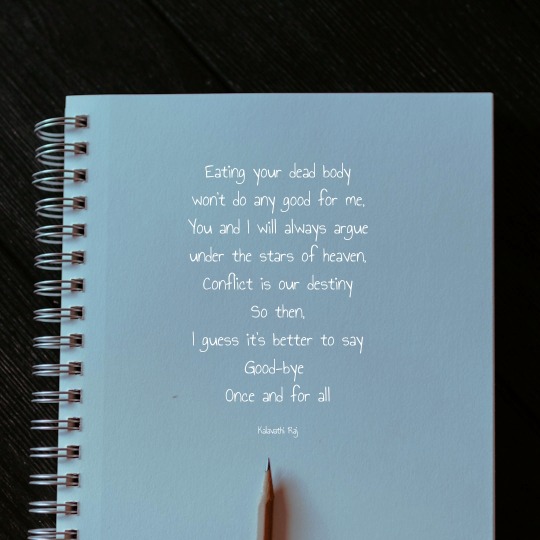 Eating your dead body
won't do any good for me,
You and I will always argue
under the stars of heaven,
Conflict is our destiny
So then,
I guess it's better to say
Good-bye
Once and for all
Kalavathi Raj